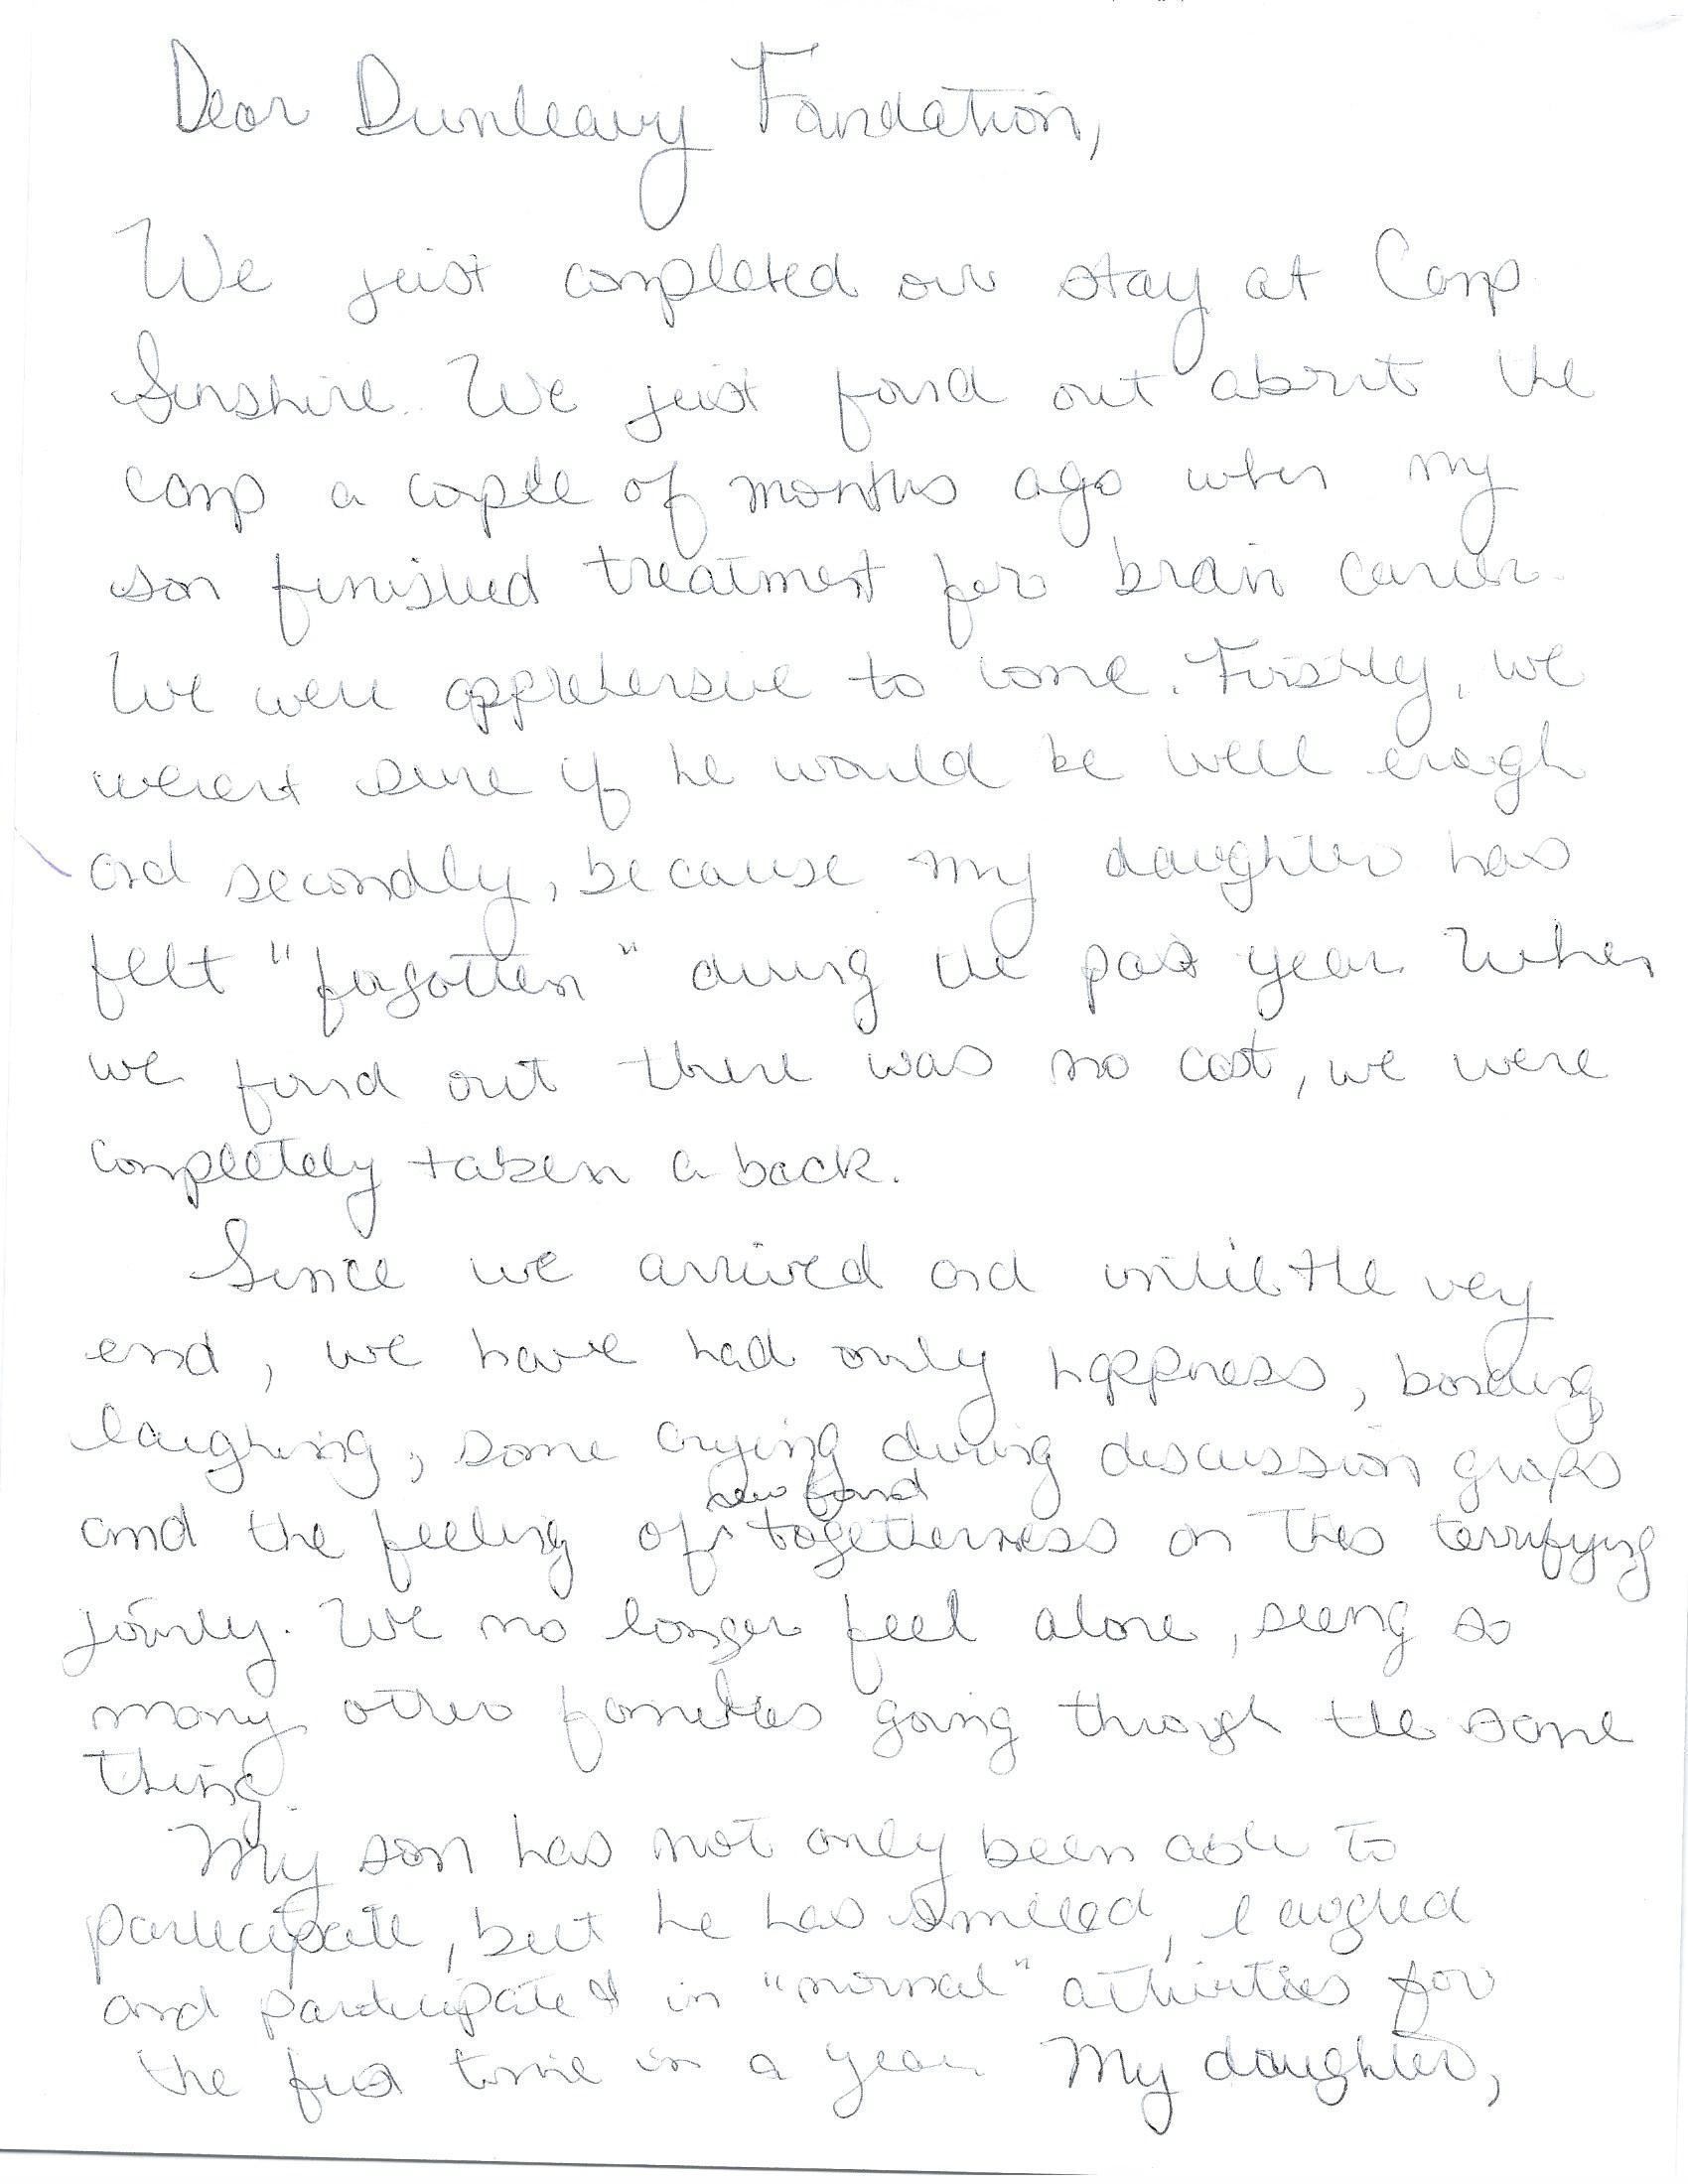 Dear Dunleavy Foundation,
We just completed our stay at Camp
Sunshine. We just found out about the
camp a couple of months ago when my
son finished treatment for brain cancer.
We were apprehensive to come. Firstly, we
weren't sure if he would be well enough
and secondly, because my daughter has
felt "forgotten" during the past year. When
we found out there was no cost, we were
completely taken a back.
Since we arrived and until the very
end, we have had only happiness, bonding
laughing, some crying during discussion groups
new found
and the feeling of togetherness on this terrifying
journey. We no longer feel alone, seeing so
many other families going through the same
thing.
My son has not only been able to
participate, but he has smiled, laughed
and participated in "normal" activities for
the first time in a year. My daughter,